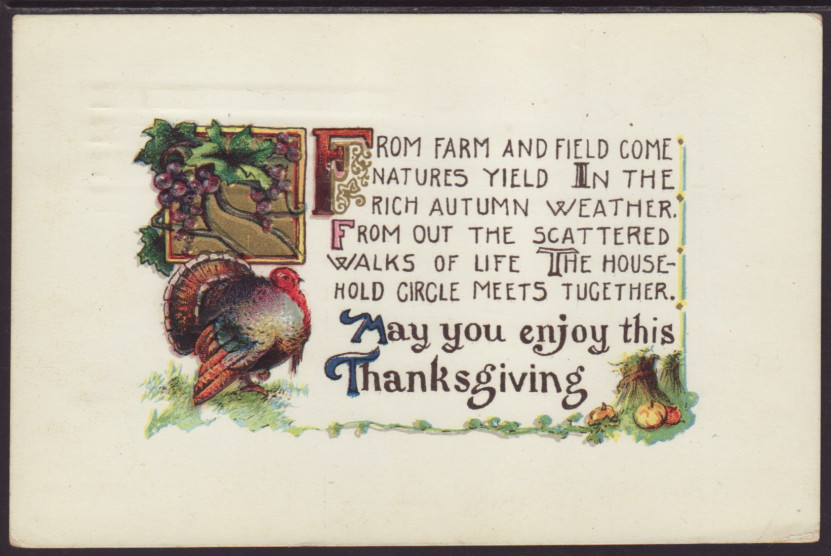 FROM FARM AND FIELD COME
NATURES YIELD IN THE
RICH AUTUMN WEATHER.
FROM OUT THE SCATTERED
WALKS OF LIFE THE HOUSE-
HOLD CIRCLE MEETS TUGETHER.
May you enjoy this
Thanksgiving